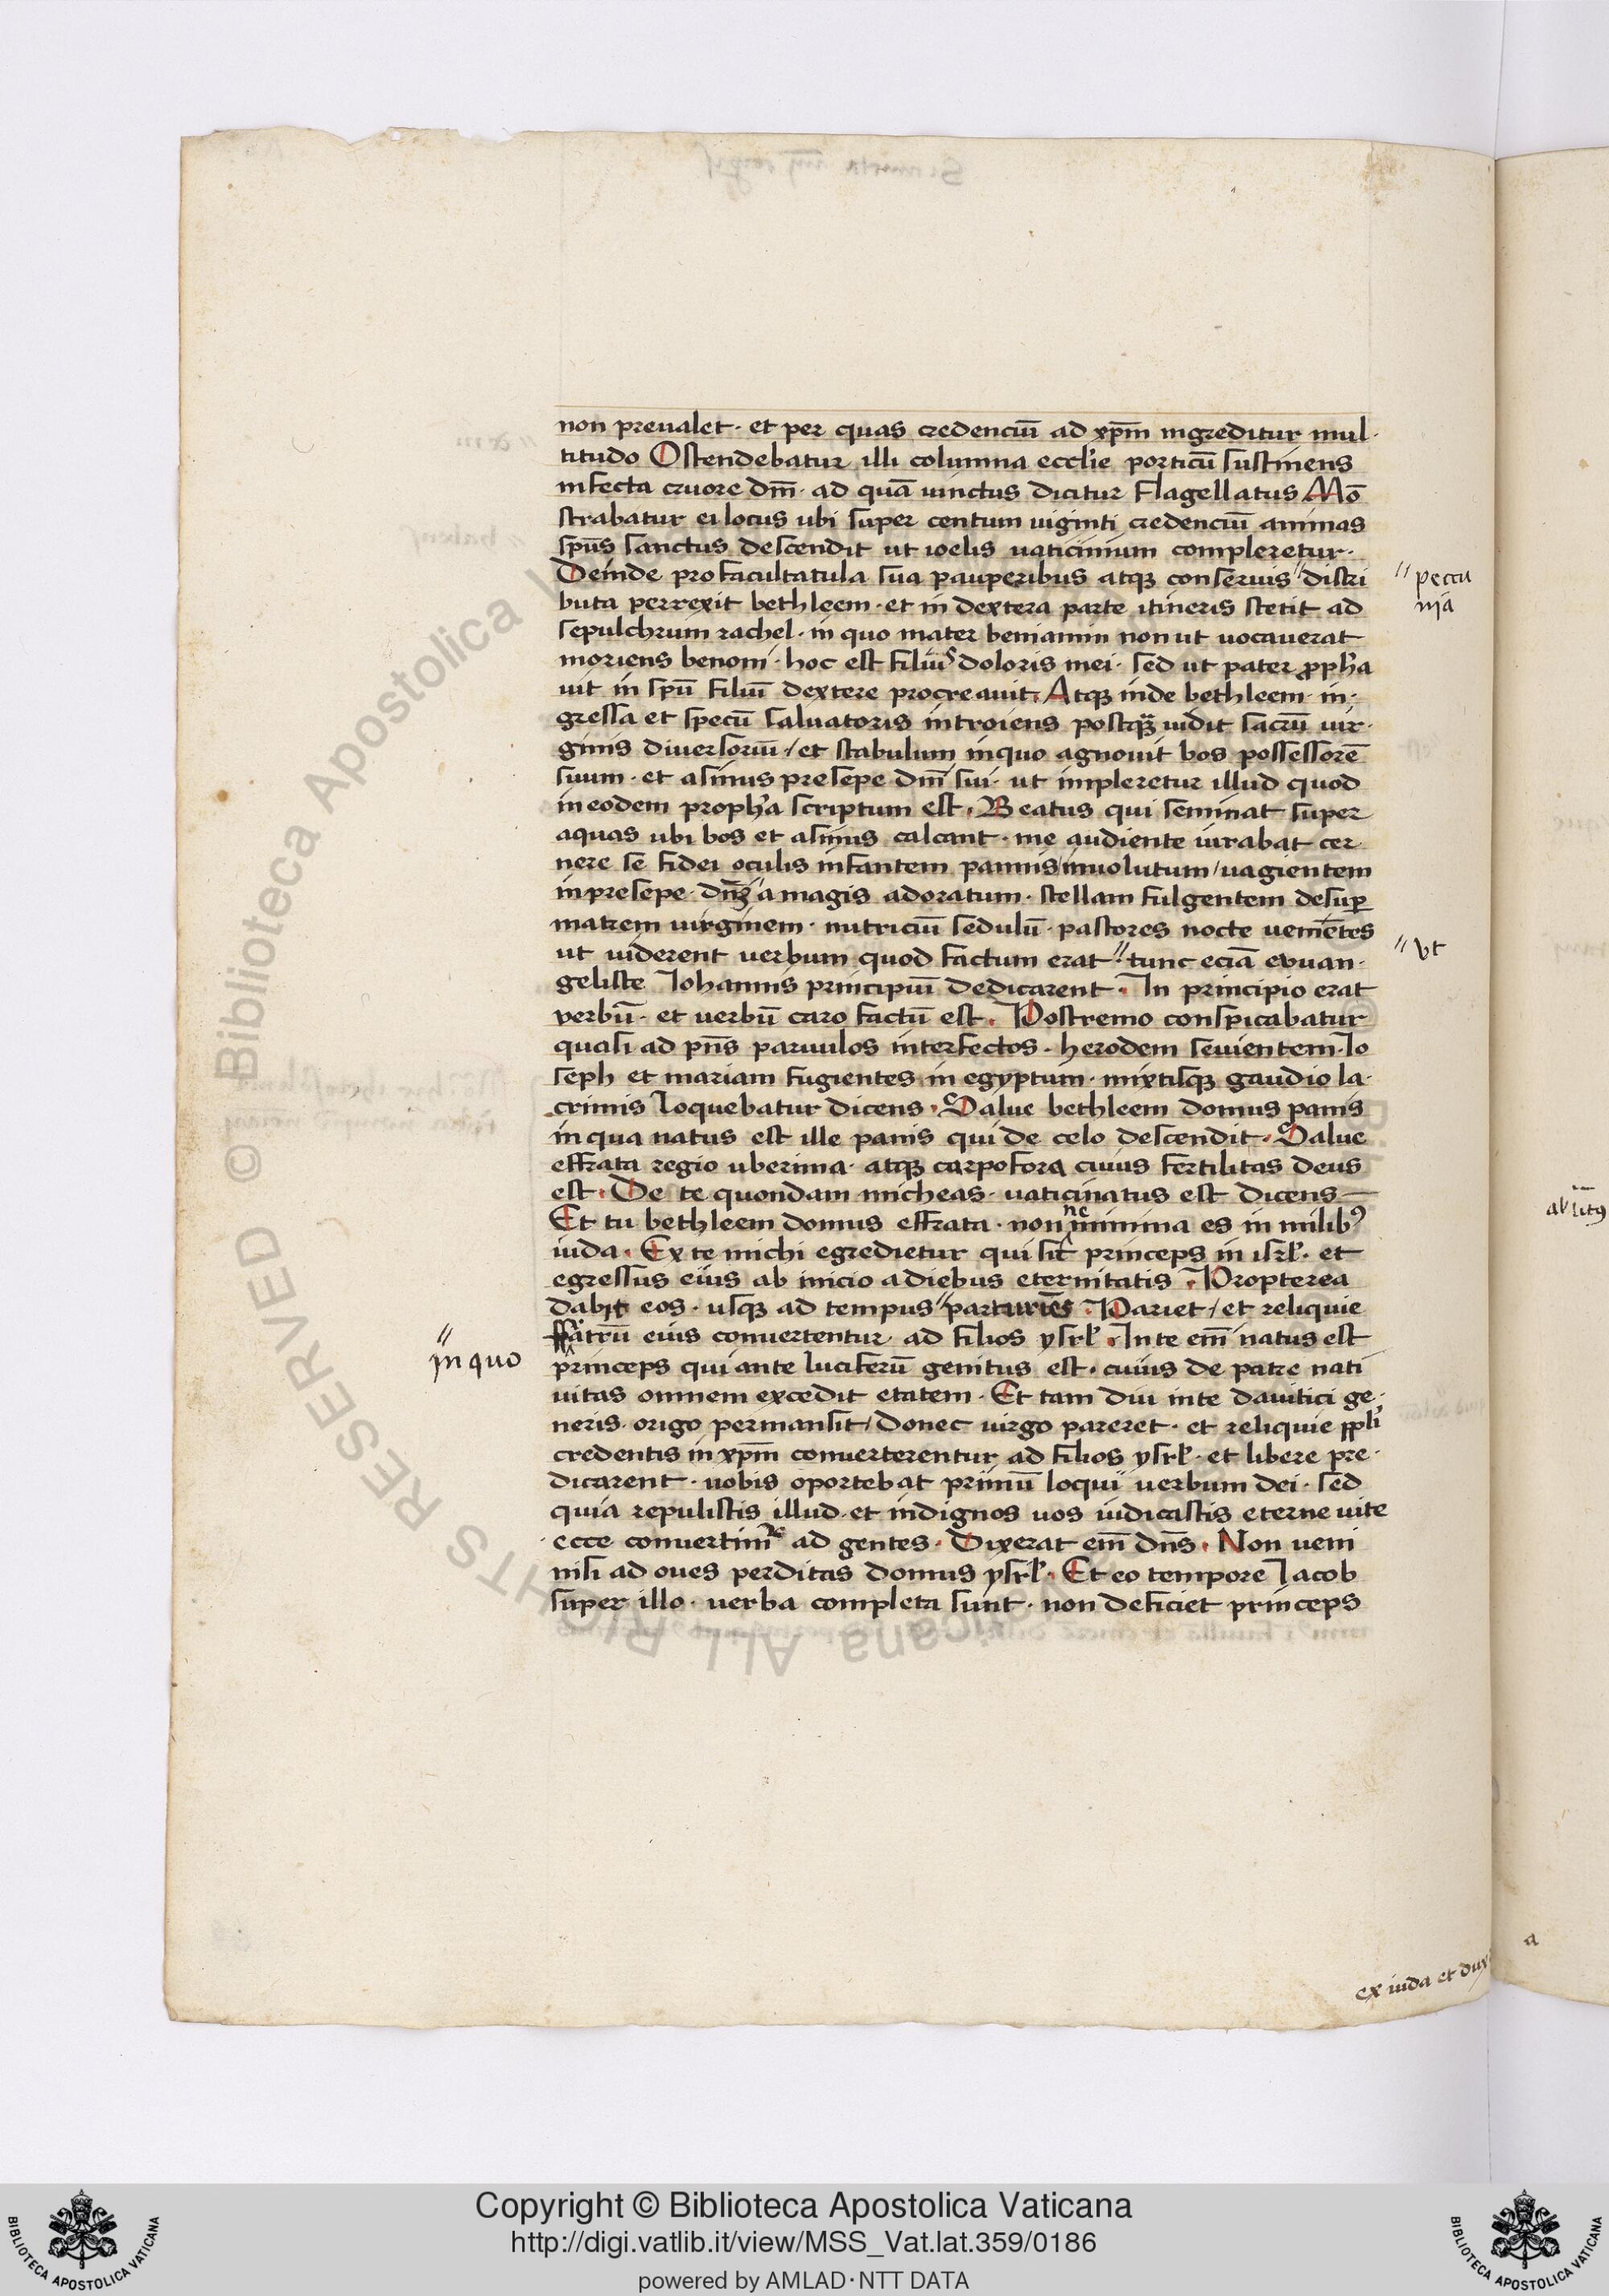 non preualet · et per quas credenciū ad xp̄m ingreditur mul·
titudo Ostendebatur illi columna eccl'ie porticū sustinens
infecta cruore dn̄i · ad quā uinctus dicitur flagellatus Mō
strabatur ei locus ubi super centum uiginti credenciū animas
sp̄us sanctus descendit ut ioelis uaticinium compleretur ·
Deinde pro facultatula sua pauperibus atqꝫ conseruis // distri
buta perrexit bethleem · et in dextera parte itineris stetit ad
sepulchrum rachel · in quo mater beniamin non ut uocauerat
moriens benoni · hoc est filius doloris mei · sed ut pater ꝓph'a
uit in sp̄u filiū dextere procreauit. Atqꝫ inde bethleem · in·
gressa et specū saluatoris introiens postqꝫ uidit sacrū uir·
ginis diuersoriū / et stabulum inquo agnouit bos possessorē
suum · et asinus presepe dn̄i sui · ut impleretur illud quod
in eodem proph'a scriptum est · Beatus qui seminat super
aquas ubi bos et asinus calcant · me audiente iurabat cer
nere se fidei oculis infantem pannis / inuolutum / uagientem
in presepe · dn̄ꝫ a magis adoratum · stellam fulgentem desuꝑ
matrem uirginem · nutriciū sedulū · pastores nocte ueniētes
ut uiderent uerbum quod factum erat // · tunc eciā euuan·
geliste Johannis principiū dedicarent · In principio erat
verbū · et uerbū caro factū est · Postremo conspicabatur
quasi ad pn̄s paruulos interfectos · herodem seuientem · Jo
seph et mariam fugientes in egyptum · mixtisqꝫ gaudio la·
crimis loquebatur dicens · Salue bethleem domus panis
in qua natus est ille panis qui de celo descendit · Salue
effrata regio uberima · atqꝫ carpofora cuius fertilitas deus
est · De te quondam micheas · uaticinatus est dicens
Et tu bethleem domus effrata · non ne minima es in milibꝰ
iuda · Ex te michi egredietur qui sit princeps in isrl' · et
egressus eius ab inicio a diebus eternitatis · Propterea
dabit eos · usqꝫ ad tempus // parturiēs · Pariet / et reliquie
fratrū eius conuertentur ad filios ysrl' · In te em̄ natus est
princeps qui ante luciferū genitus est · cuius de patre nati
uitas omnem excedit etatem · Et tam diu inte dauitici ge·
neris · origo permansit / donec uirgo pareret · et reliquie ppl'i
credentis in xp̄m conuerterentur ad filios ysrl' · et libere pre·
dicarent · uobis oportebat primū loqui uerbum dei · sed
quia repulistis illud · et indignos uos iudicastis eterne uite
ecce conuertimꝰ ad gentes · Dixerat em̄ dn̄s · Non ueni
nisi ad oues perditas domus ysrl' · Et eo tempore Jacob
super illo · uerba completa sunt · non deficiet princeps
// peccu
nia
// vt
// in quo
ex iuda et dux
a
© Biblioteca Apostolica Vaticana ALL RIGHTS RESERVED
Copyright © Biblioteca Apostolica Vaticana
http://digi.vatlib.it/view/MSS_Vat.lat.359/0186
powered by AMLAD·NTT DATA
BIBLIOTECA APOSTOLICA VATICANA
BIBLIOTECA APOSTOLICA VATICANA